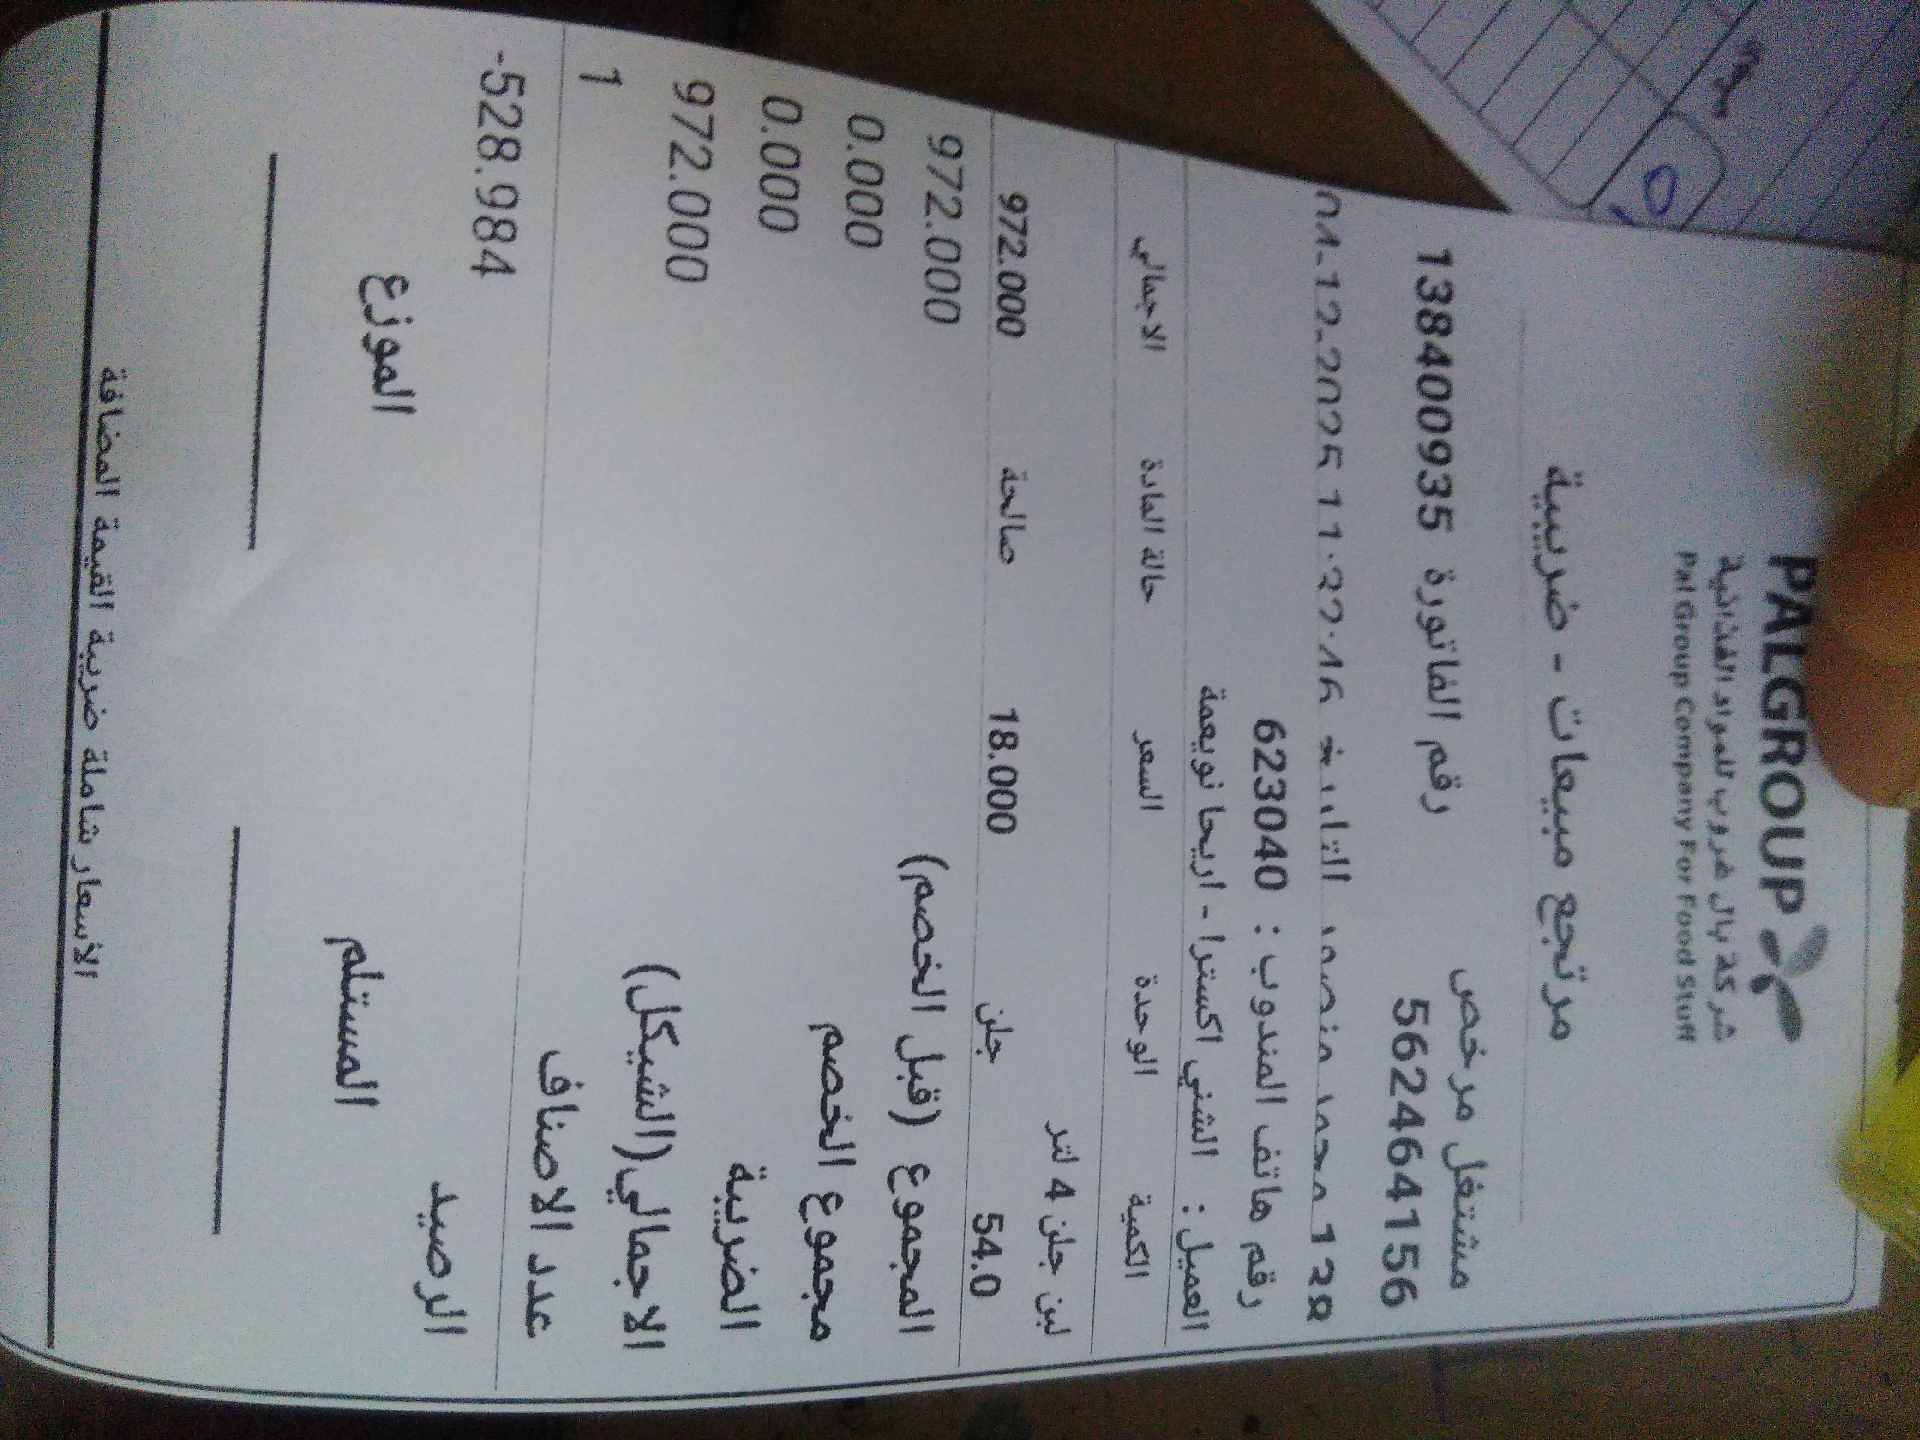 PALGROUP
شركة بال غروب للمواد الغذائية
Pal Group Company For Food Stuff
مرتجع مبيعات - ضريبية
مشتغل مرخص رقم الفاتورة 138400935
562464156
128 محمد منصور التاريخ
رقم هاتف المندوب : 623040
العميل : الشني اكسترا - اريحا نويعمة
الكمية الوحدة السعر حالة المادة الاجمالي
لبن جلن 4 لتر
54.0 جلن 18.000 صالحة 972.000
المجموع (قبل الخصم) 972.000
مجموع الخصم 0.000
الضريبة 0.000
الاجمالي(الشيكل) 972.000
عدد الاصناف 1
الرصيد -528.984
المستلم الموزع
الأسعار شاملة ضريبة القيمة المضافة